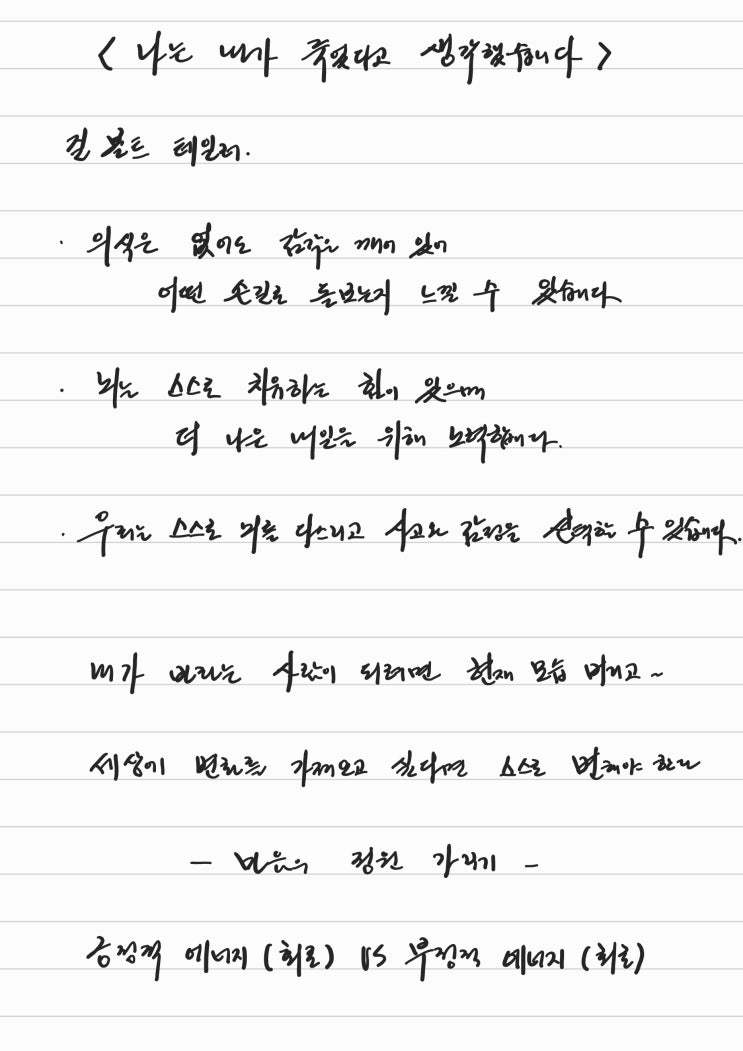 < 나는 내가 죽었다고 생각했습니다 >
질 볼트 테일러.
· 의식은 없어도 감각은 깨어 있어
어떤 손길로 돌보는지 느낄 수 있습니다
· 뇌는 스스로 치유하는 힘이 있으며
더 나은 내일을 위해 노력합니다.
· 우리는 스스로 뇌를 다스리고 사고와 감정을 선택할 수 있습니다.
내가 바라는 사람이 되려면 현재 모습 버리고 ~
세상에 변화를 가져오고 싶다면 스스로 변해야 한다
- 마음의 정원 가꾸기 -
긍정적 에너지 (회로) VS 부정적 에너지 (회로)